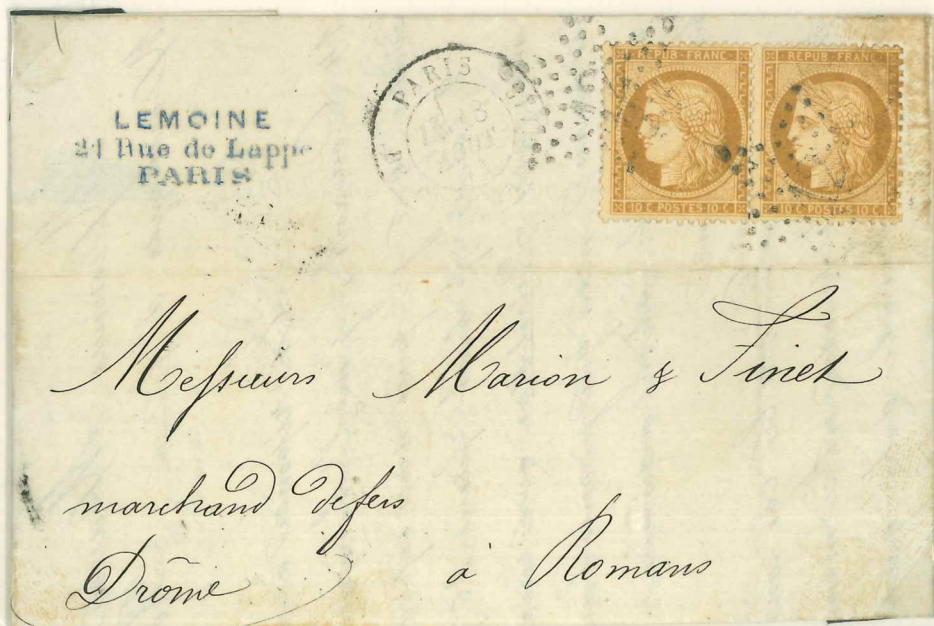 LEMOINE
21 Rue de Lappe
PARIS
PARIS
REPUB FRANC
10 C POSTES 10 C
REPUB FRANC
10 C POSTES 10 C
Messieurs Marion & Finet
marchand de fers
Drôme à Romans